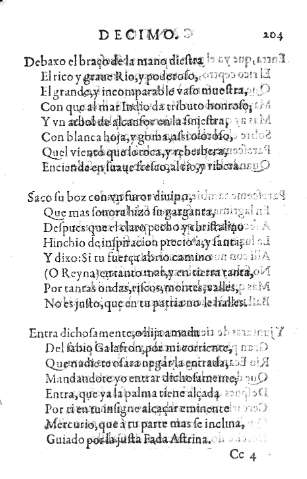 DECIMO. 204
Debaxo el braço de la mano diestra
El rico y graue Rio, y poderoso,
El grande, y incomparable vaso muestra,
Con que al mar Indio da tributo honroso,
Y vn arbol de alcanfor en la siniestra
Con blanca hoja, y goma, assi oloroso,
Quel viento que lo toca, y reberbera,
Enciende en suaue fresco, al rio, y ribera.
Saco su boz con vn furor diuino,
Que mas sonora hizo su garganta,
Despues que el claro pecho y christalino
Hinchio de inspiracion preciosa, y santa;
Y dixo: Si tu fuerça abrio camino
(O Reyna) en tanto mar, y en tierra tanta,
Por tantas ondas, riscos, montes, valles,
No es justo, que en tu patria no le halles.
Entra dichosamente, o hija amada
Del sabio Galafron, por mi corriente,
Que nadie te osara negar la entrada,
Mandandote yo entrar dichosamente,
Entra, que ya la palma tiene alçada
Por ti en tu insigne alcaçar eminente
Mercurio, que à tu parte mas se inclina,
Guiado por la justa Fada Astrina.
Cc 4